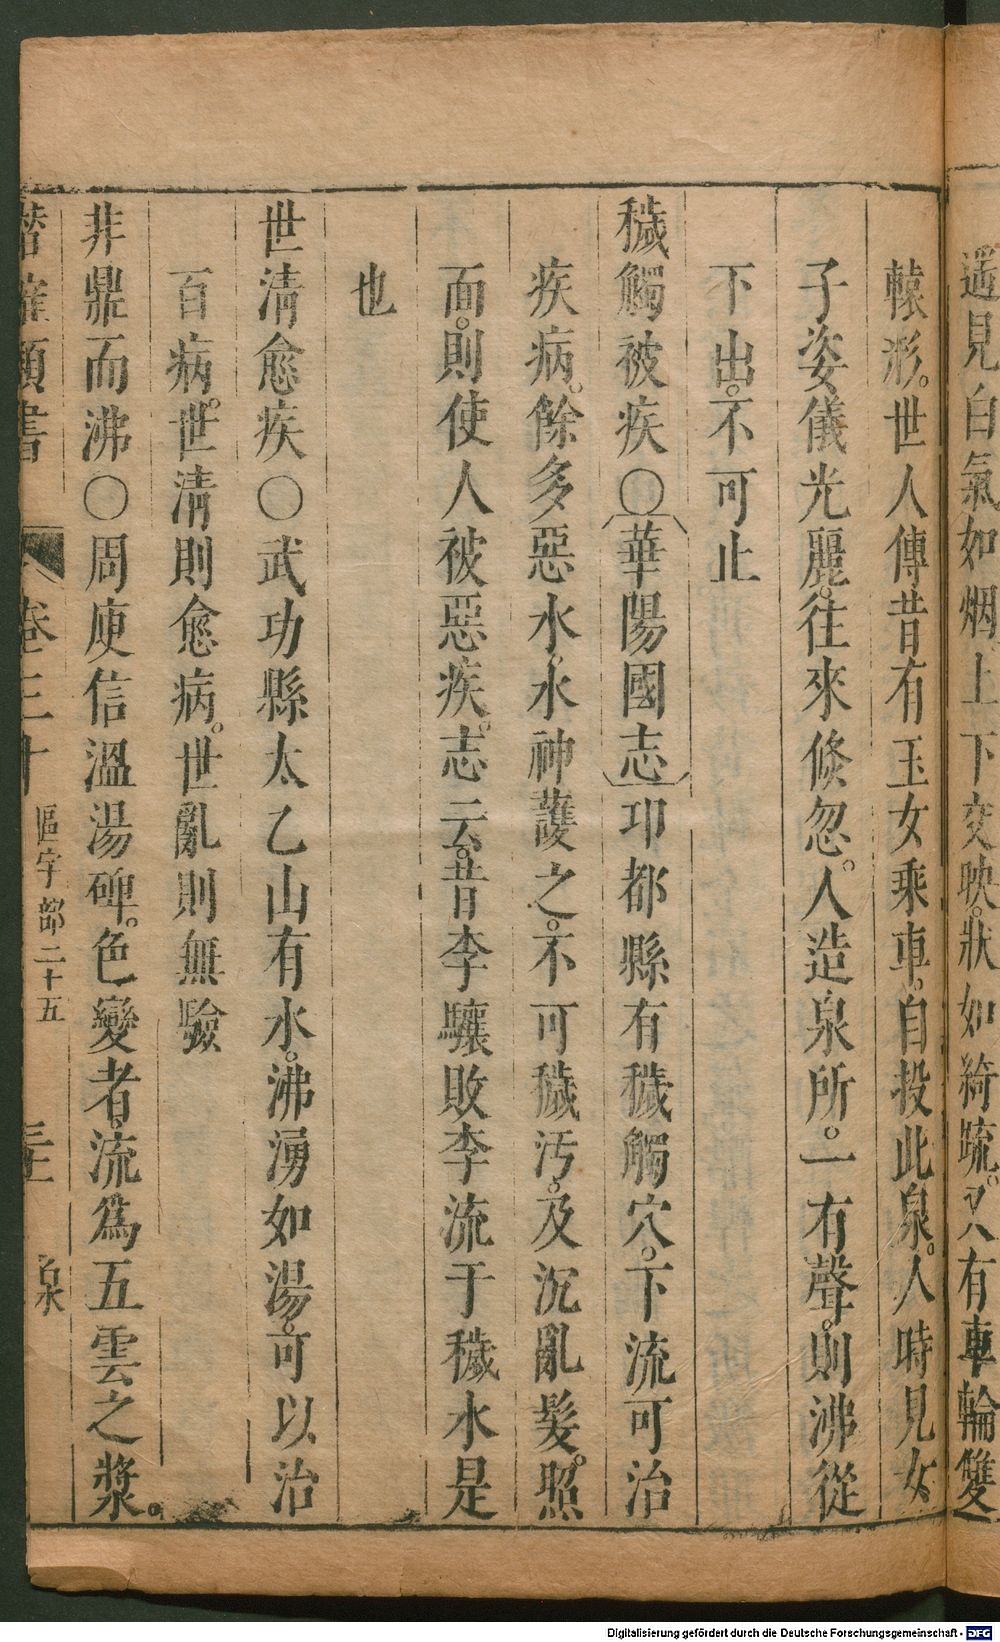 遥見白氣如烟上下交映。狀如綺疏。又有車輪雙
轅形。世人傳昔有玉女乘車。自投此泉。人時見女
子姿儀光麗。往來倐忽。人造泉所。一有聲。則沸從
下出。不可止
穢觸被疾○華陽國志卭都縣有穢觸穴。下流可治
疾病。餘多惡水。水神護之。不可穢汚。及沉亂髮。照
面。則使人被惡疾。志云。昔李驤敗李流于穢水是
也
世清愈疾○武功縣太乙山有水。沸湧如湯。可以治
百病。世清則愈病。世亂則無驗
非鼎而沸○周庾信溫湯碑。色變者。流爲五雲之漿。
類書
卷三十
區字部二十五
泉
Digitalisierung gefördert durch die Deutsche Forschungsgemeinschaft - DFG